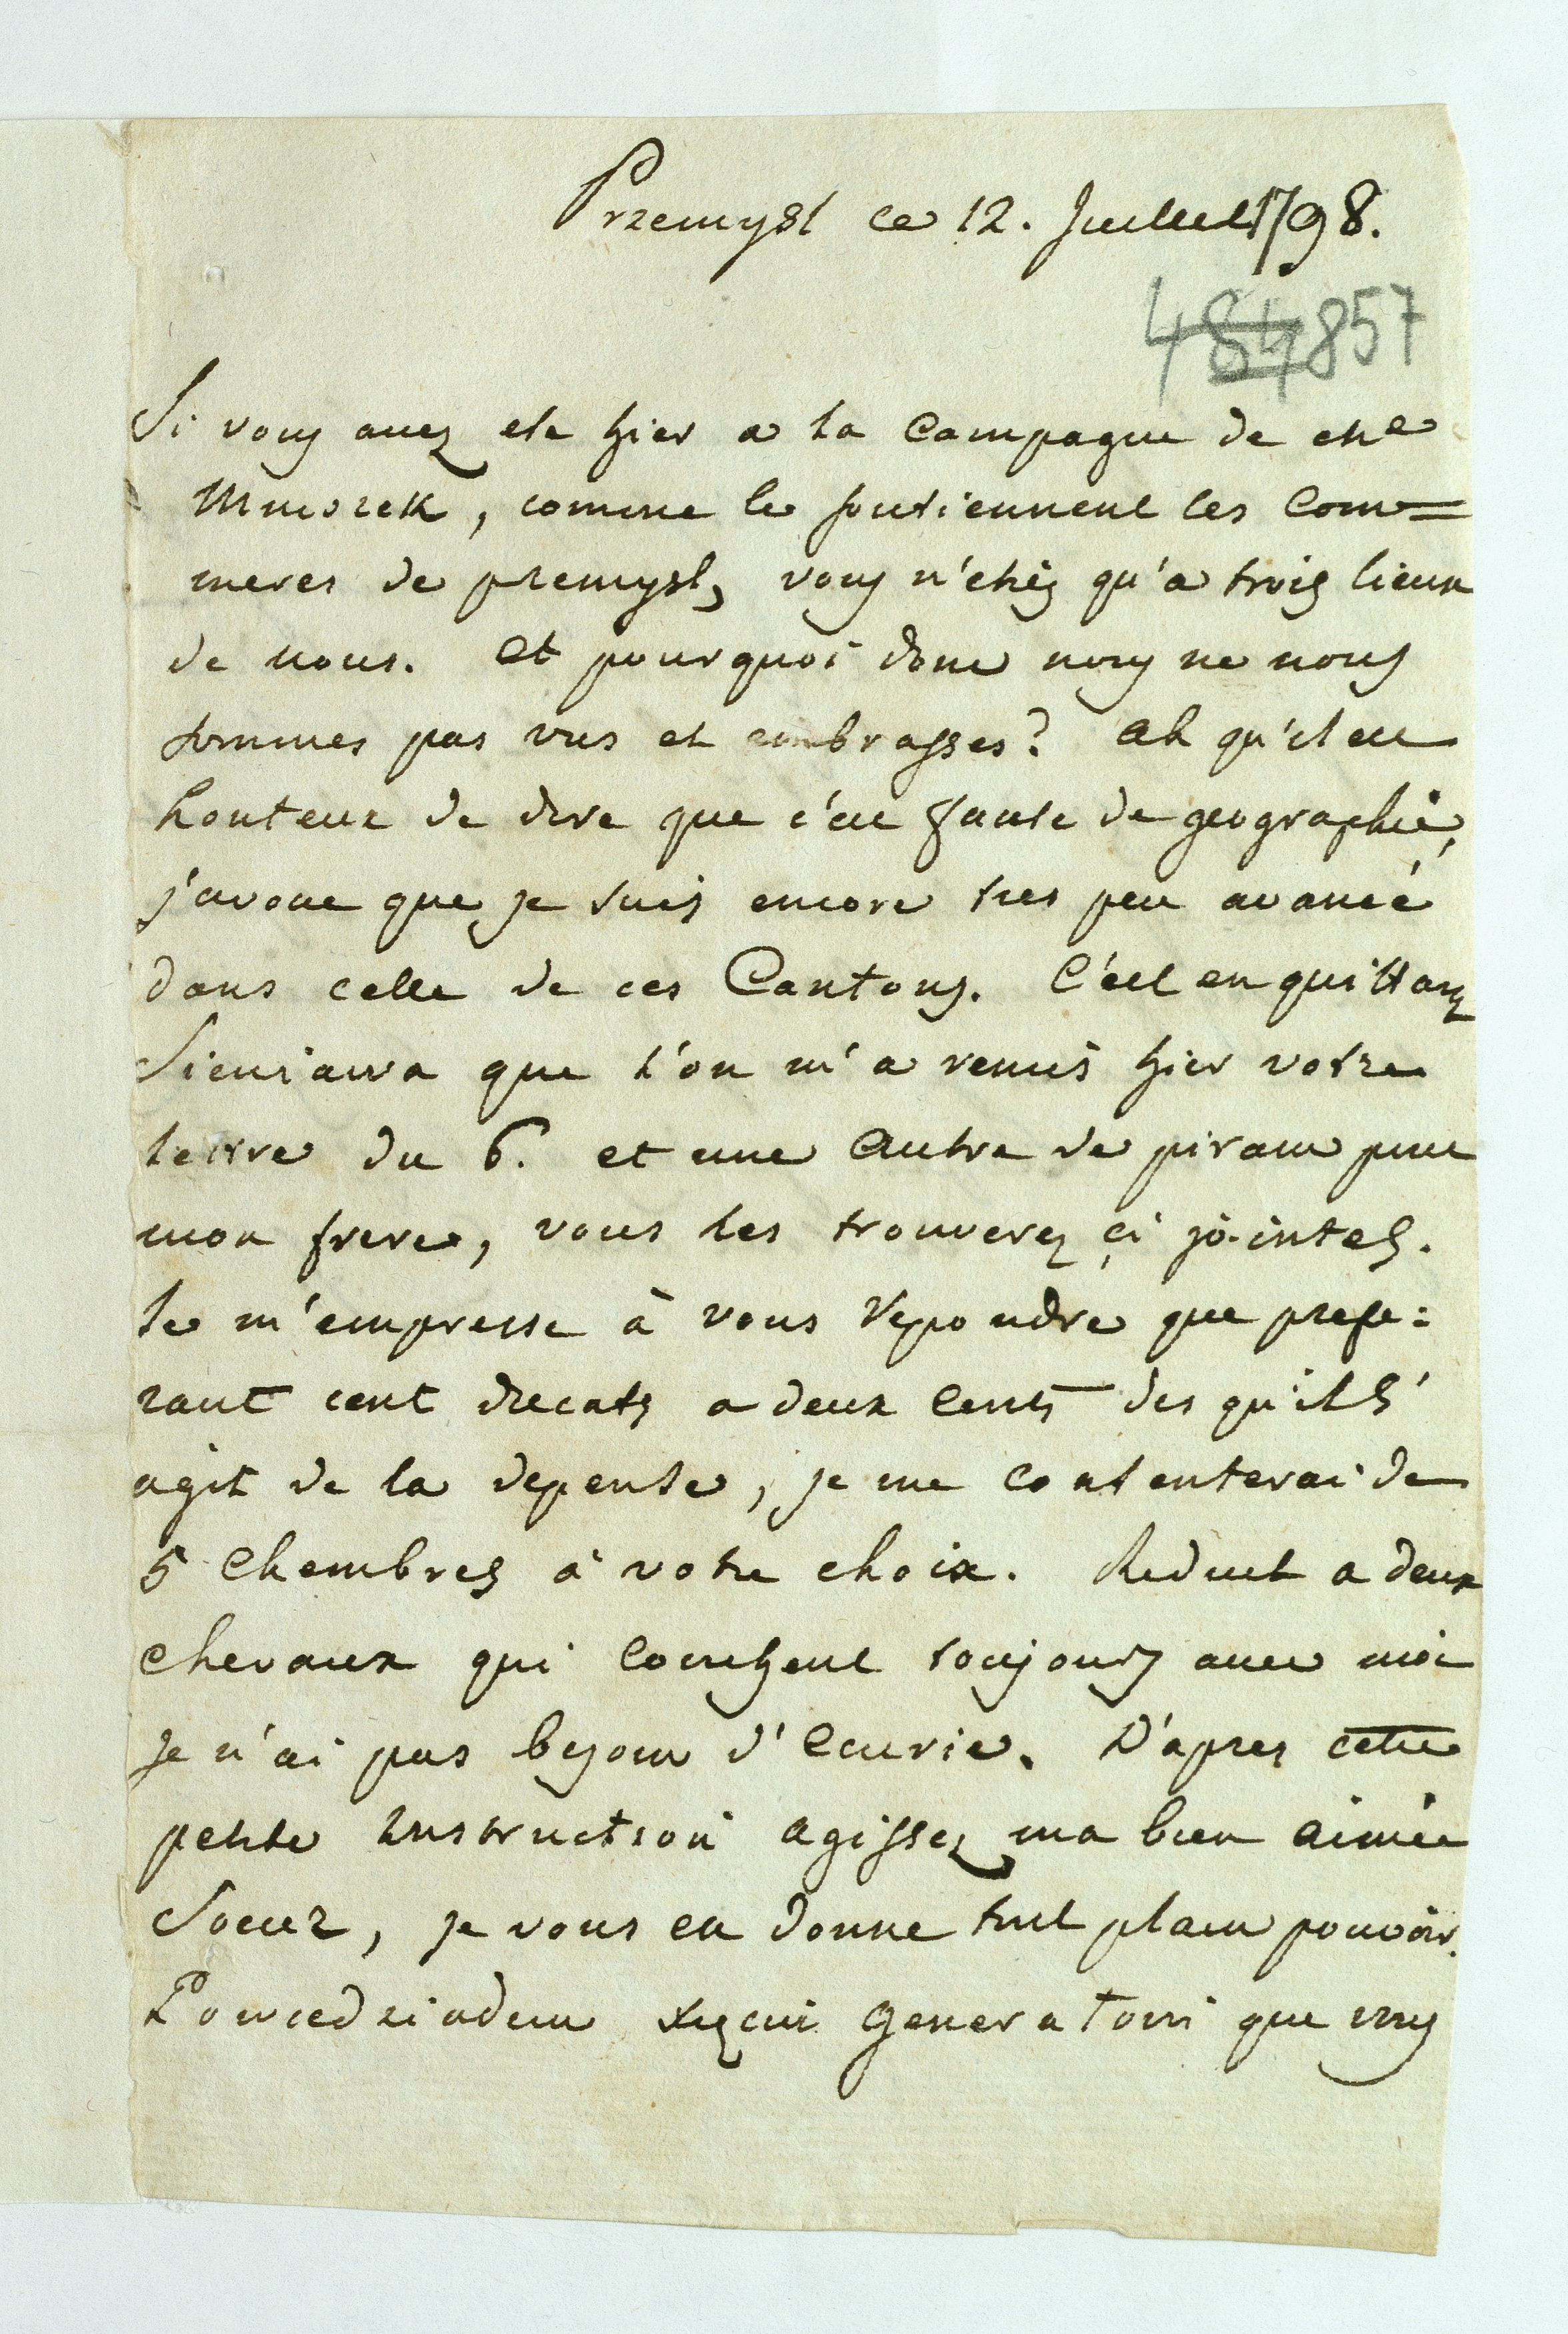 Przemysl ce 12. Juillet 1798.
484 857
Si vous avez ete hier a la Campagne de che
Mniszek, comme le soutiennent les Com=
meres de przemysl, vous n'etiés qu'a trois lieux
de nous. et pourquoi donc nous ne nous
sommes pas vus et embrasses? ah qu'il est
honteux de dire que c'est faute de geographie,
j'avoue que je suis encore tres peu avancé
dans celle de ces Cantons. C'est en quittant
Sieniawa que l'on m'a remis hier votre
lettre du 6. et une autre de piram pour
mon frere, vous les trouverez çi jointes.
Je m'empresse à vous repondre que prefe:
rant cent ducats a deux Cents des qu'il s'
agit de la depense, je me contenterai de
5 Chembres à votre choix. Reduit a deux
chevaux qui couchent toujours avec moi
Je n'ai pas besoin d'Ecurie. D'apres cette
petite Instruction agissez ma bien aimée
Soeur, je vous en donne tout plain pouvoir.
Powiedziadem xięciu Generatowi que vous